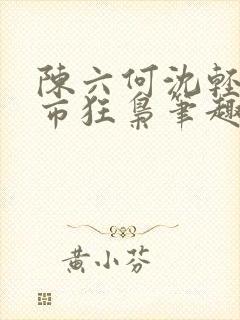 陳六何沈輕
市狂梟筆趣
黃小芬